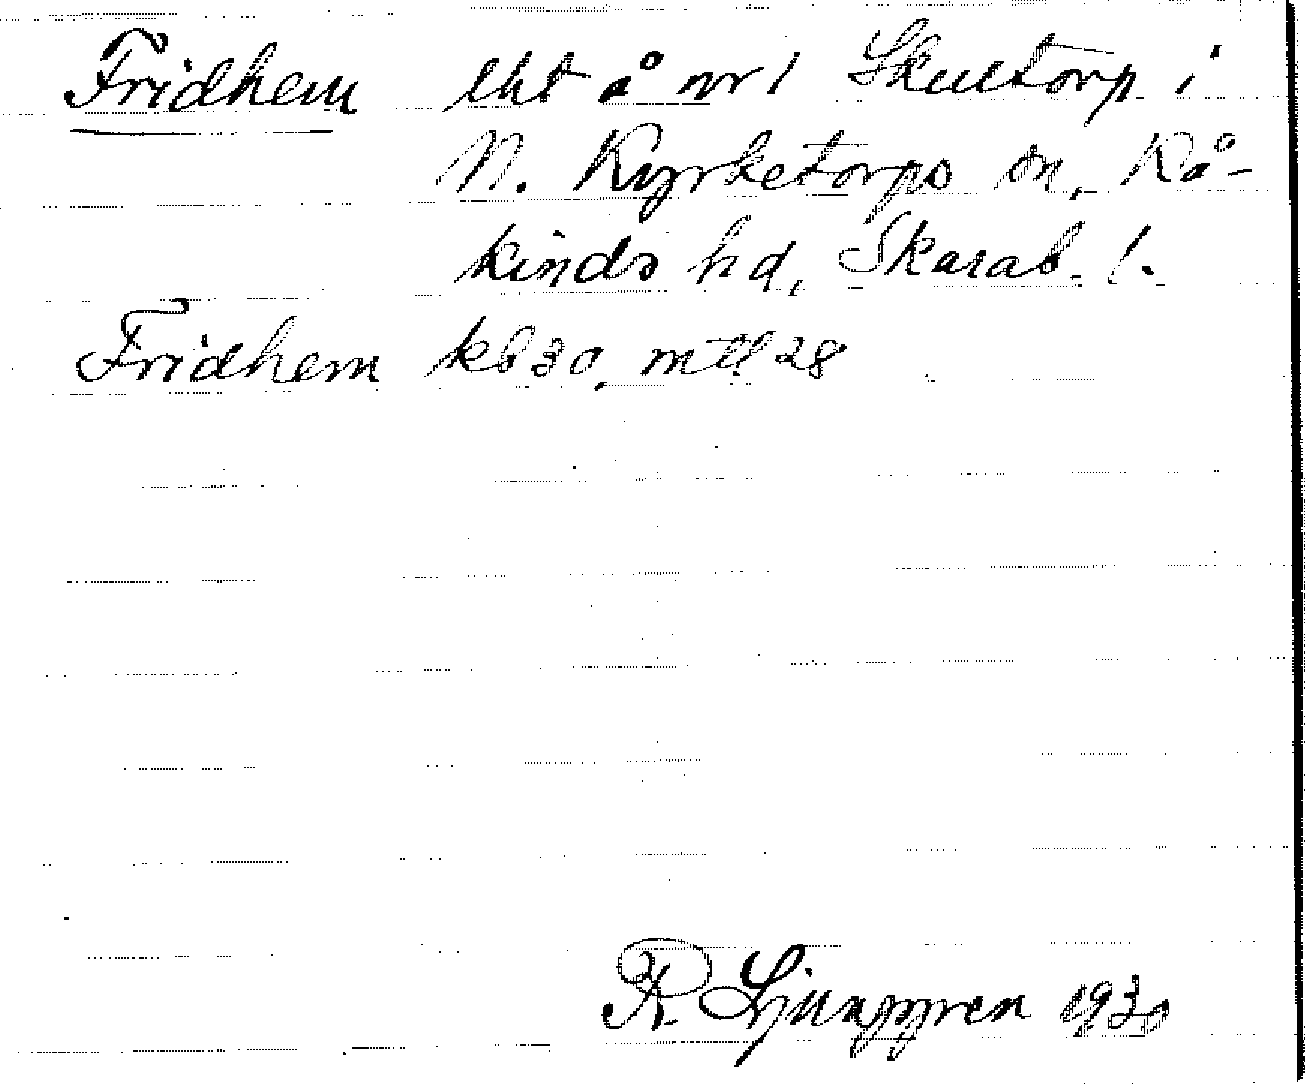 Fridhem lht å nr 1 Skultorp i
N. Kyrketorps sn, Kå-
kinds hd, Skarab. l.
Fridhem kb 30, mtl 28
R. Ljunggren 1930